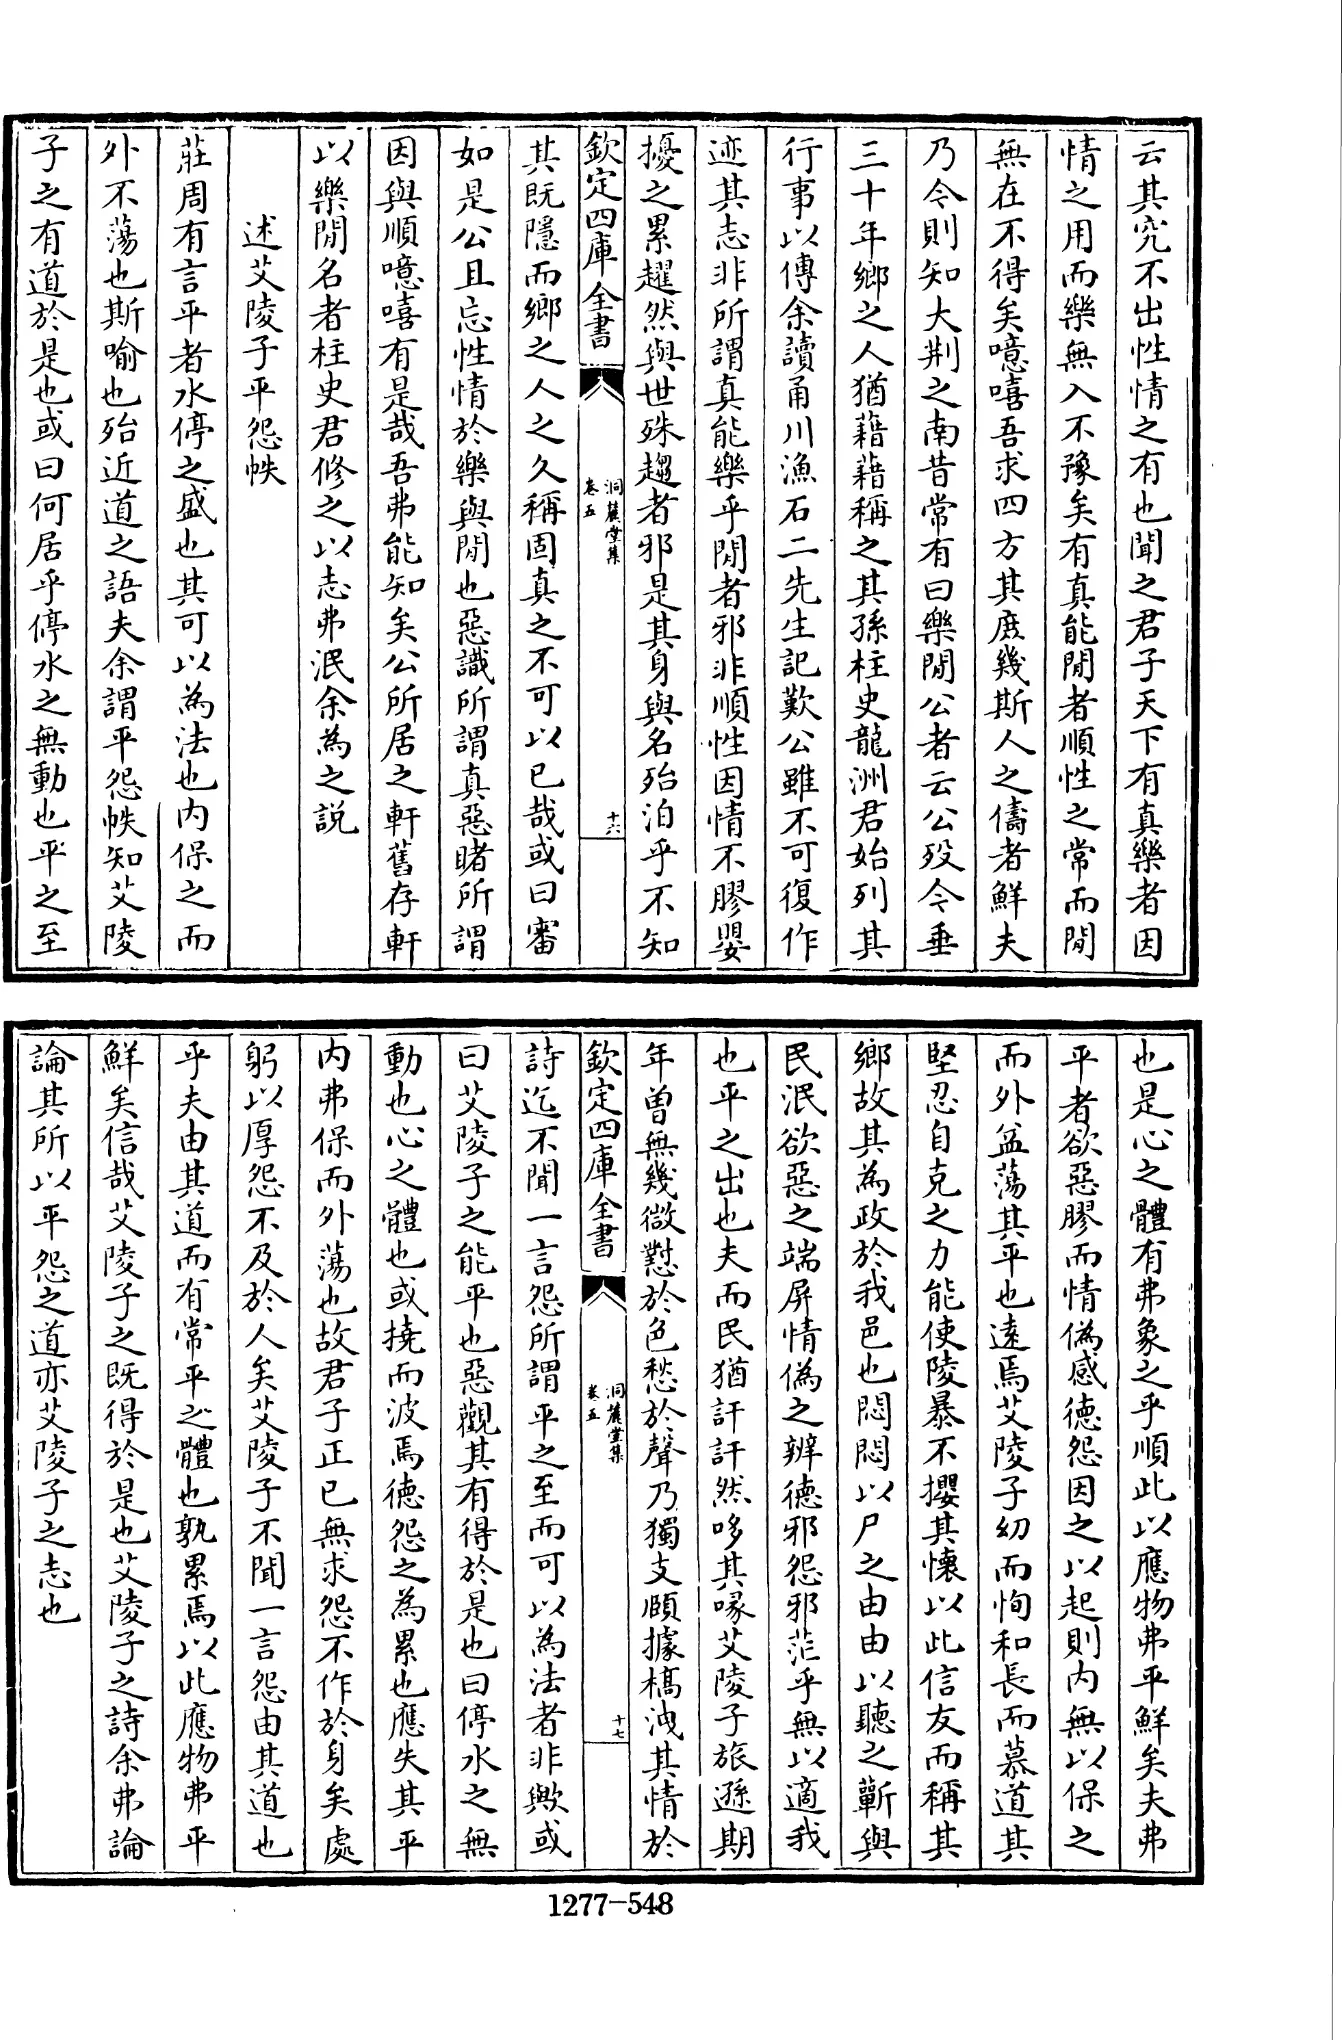 云其究不出性情之有也聞之君子天下有真樂者因
情之用而樂無入不豫矣有真能閒者順性之常而閒
無在不得矣噫嘻吾求四方其庶幾斯人之儔者鮮夫
乃令則知大荆之南昔常有曰樂閒公者云公殁令垂
三十年鄉之人猶藉藉稱之其孫柱史龍洲君始列其
行事以傳余讀甬川漁石二先生記歎公雖不可復作
迹其志非所謂真能樂乎閒者邪非順性因情不膠嬰
擾之累趯然與世殊趨者邪是其身與名殆泊乎不知
欽定四庫全書
洞麓堂集
卷五
十六
其既隱而鄉之人之久稱固真之不可以已哉或曰審
如是公且忘性情於樂與閒也惡識所謂真惡睹所謂
因與順噫嘻有是哉吾弗能知矣公所居之軒舊存軒
以樂閒名者柱史君修之以志弗泯余為之說
述艾陵子平怨帙
莊周有言平者水停之盛也其可以為法也内保之而
外不蕩也斯喻也殆近道之語夫余謂平怨帙知艾陵
子之有道於是也或曰何居乎停水之無動也平之至
也是心之體有弗象之乎順此以應物弗平鮮矣夫弗
平者欲惡膠而情偽感德怨因之以起則内無以保之
而外盆蕩其平也遠焉艾陵子幼而恂和長而慕道其
堅忍自克之力能使陵暴不攖其懷以此信友而稱其
鄉故其為政於我邑也悶悶以尸之由由以聽之蘄與
民泯欲惡之端屏情偽之辨德邪怨邪茫乎無以適我
也平之出也夫而民猶訐訐然哆其喙艾陵子旅遜期
年曾無幾微懟於色愁於聲乃獨支頤據槁洩其情於
欽定四庫全書
洞麓堂集
卷五
十七
詩迄不聞一言怨所謂平之至而可以為法者非歟或
曰艾陵子之能平也惡觀其有得於是也曰停水之無
動也心之體也或撓而波焉德怨之為累也應失其平
内弗保而外蕩也故君子正已無求怨不作於身矣處
躬以厚怨不及於人矣艾陵子不聞一言怨由其道也
乎夫由其道而有常平之體也孰累焉以此應物弗平
鮮矣信哉艾陵子之既得於是也艾陵子之詩余弗論
論其所以平怨之道亦艾陵子之志也
1277-548